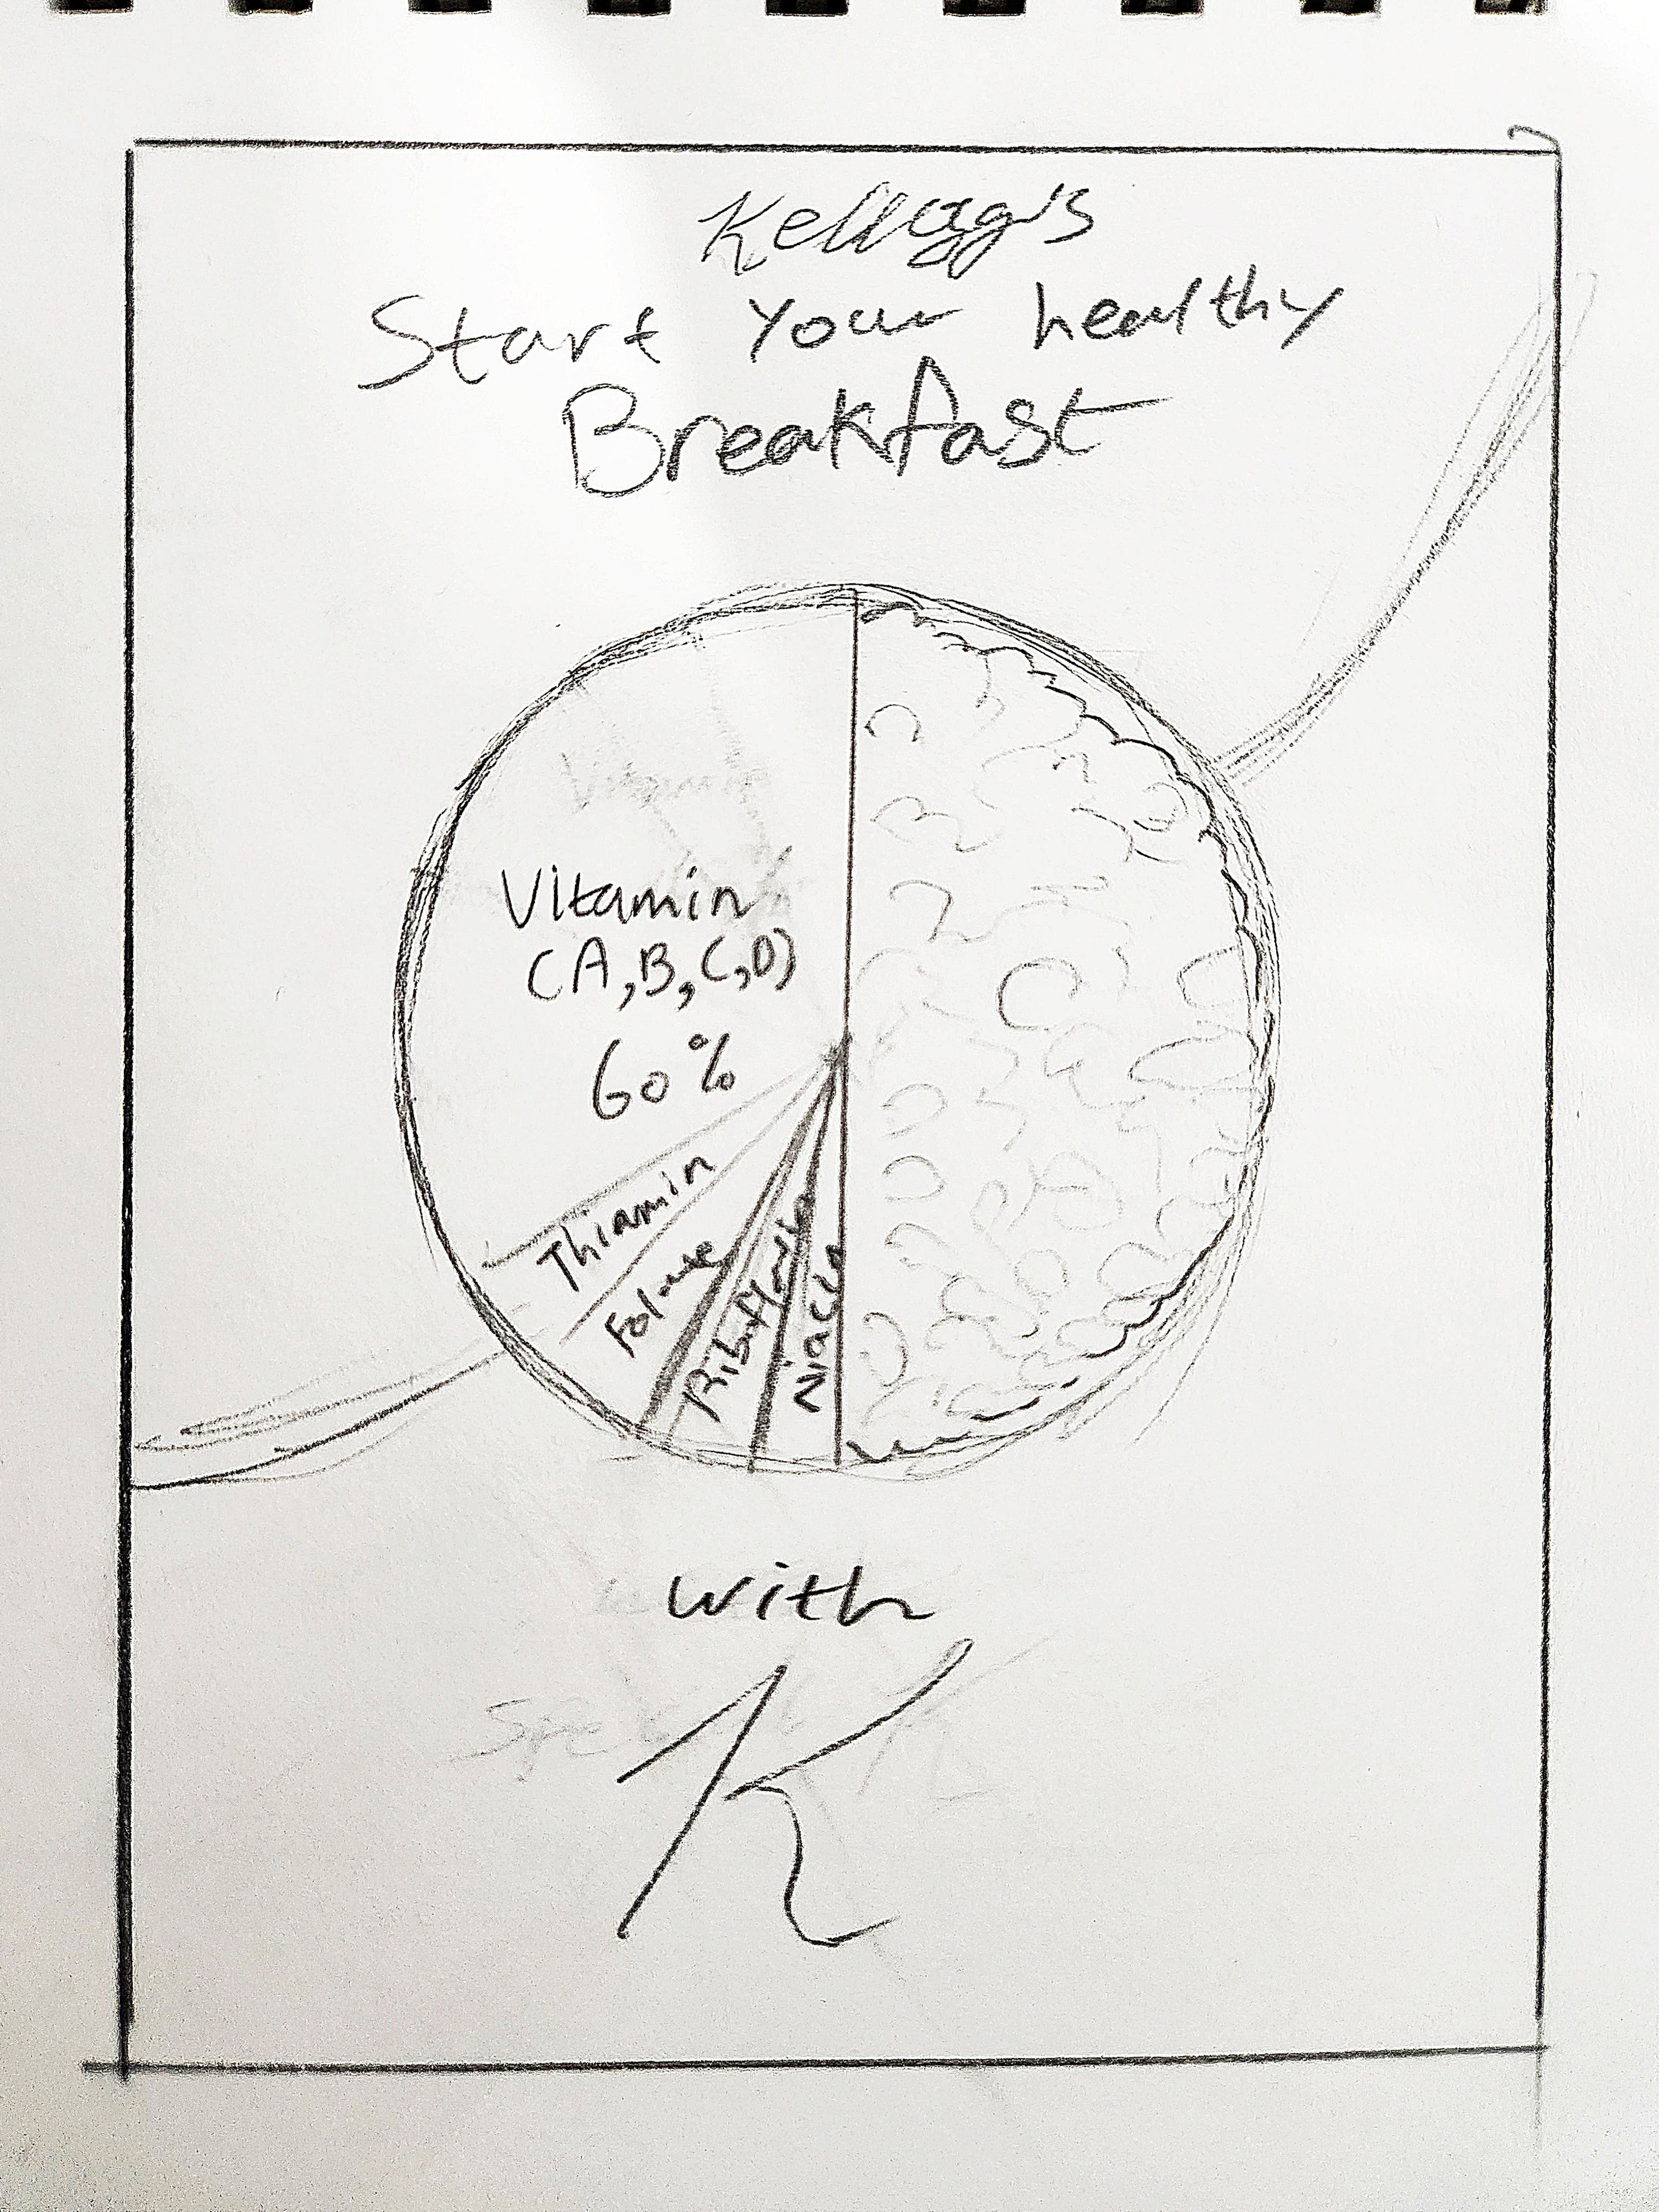 Kellogg's
Start your healthy
Breakfast
Vitamin
(A,B,C,D)
60%
Thiamin
Folate
Riboflavin
Niacin
with
K